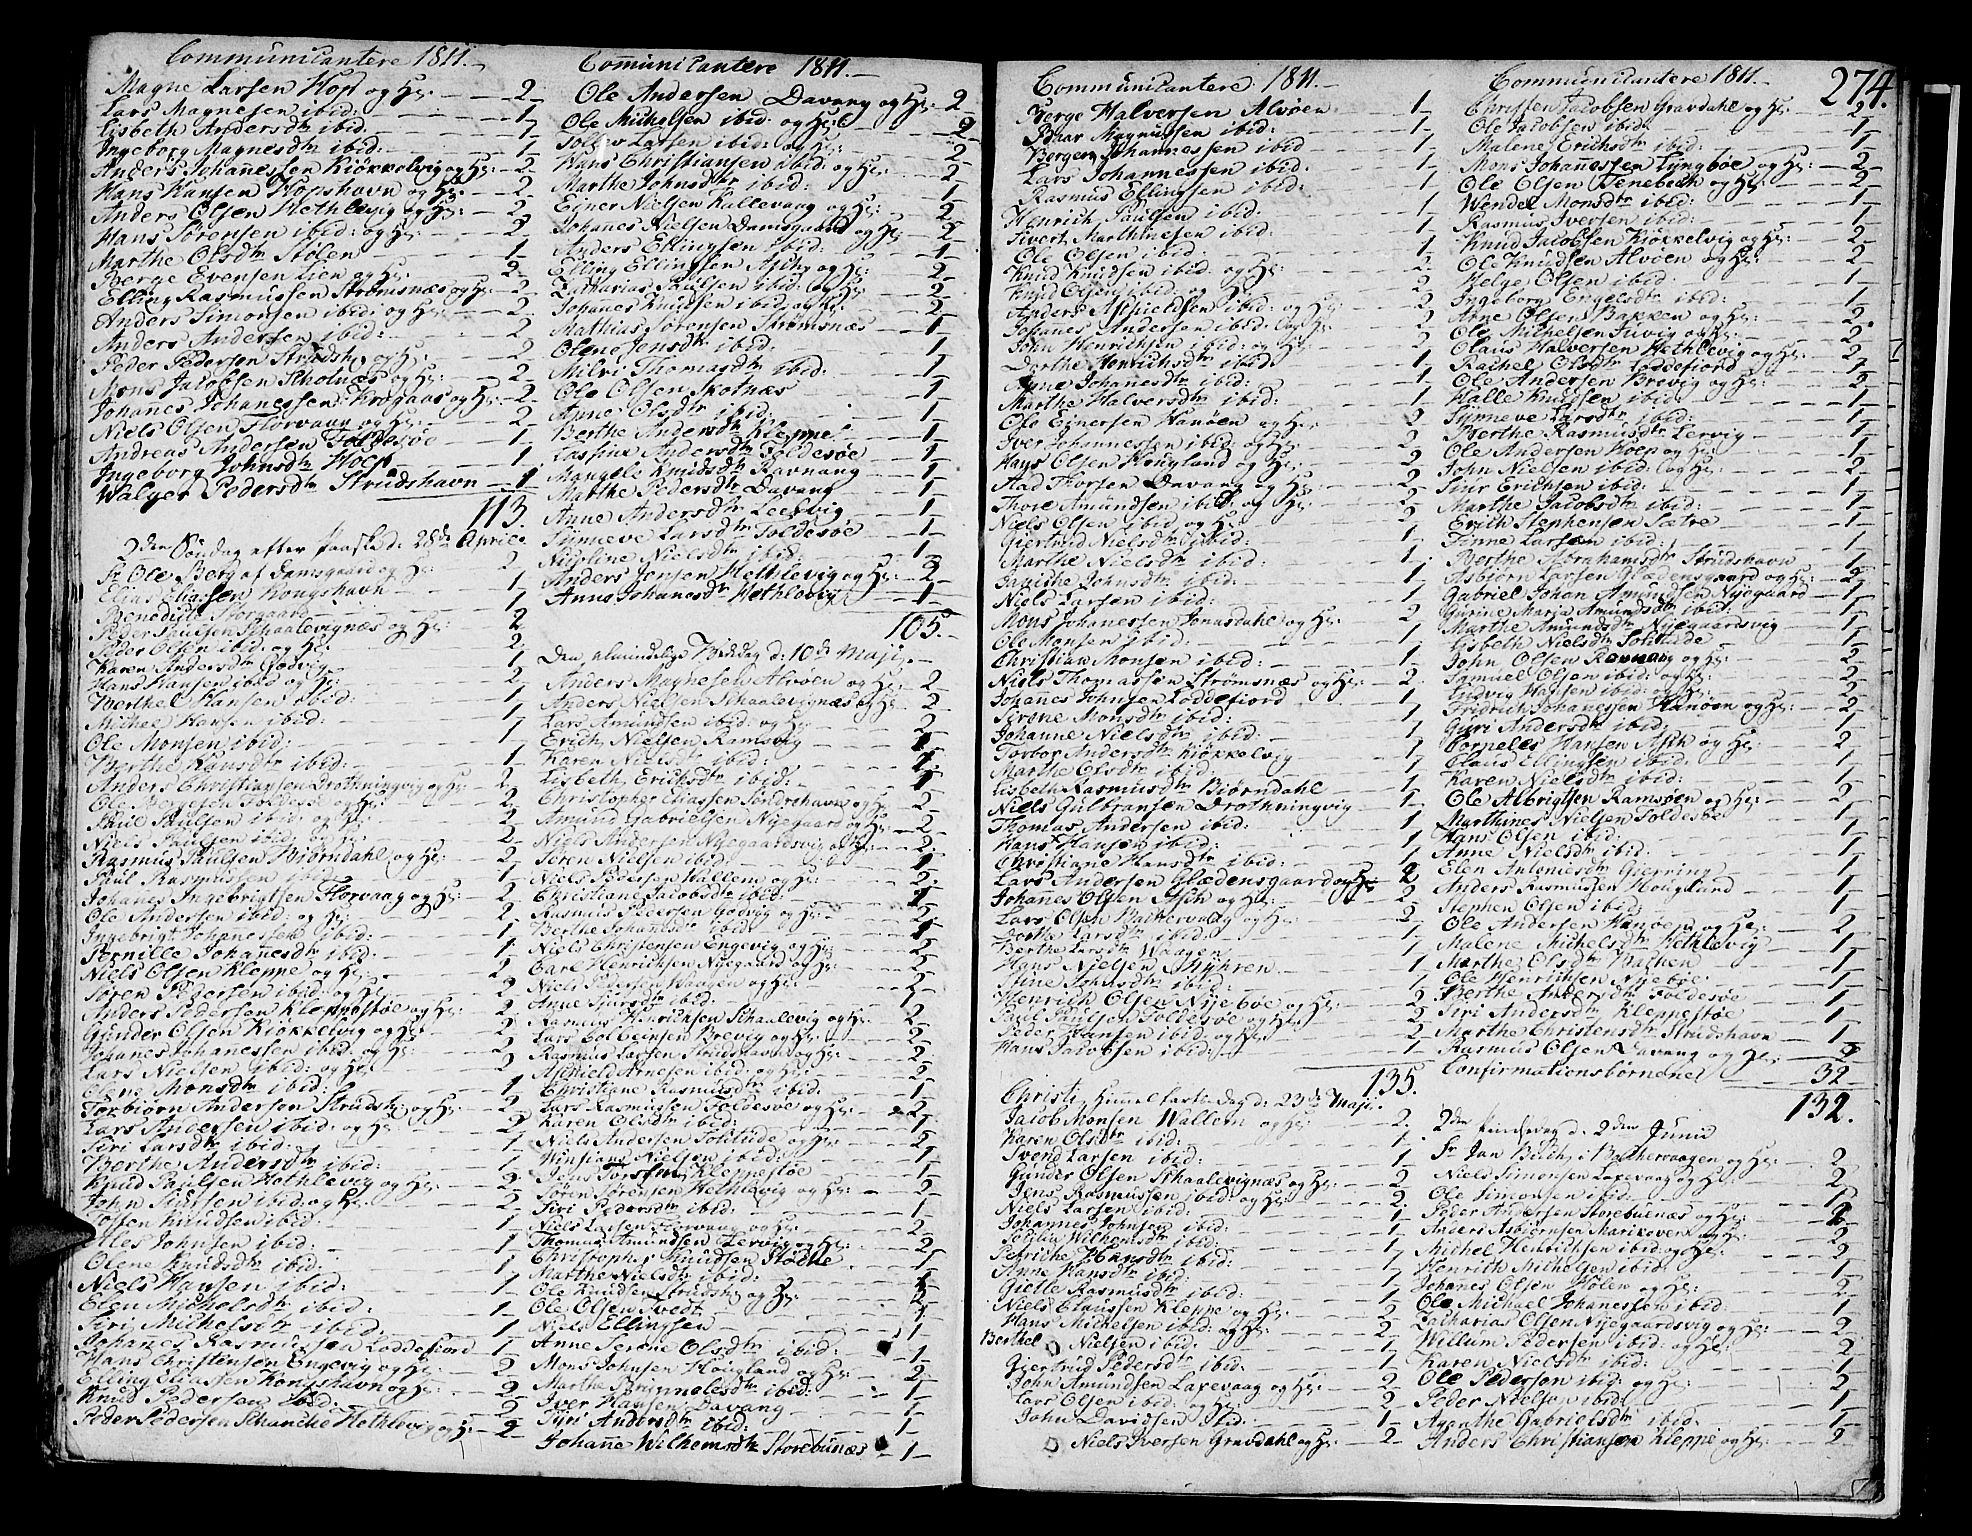 Communicantere 1811.
Magne Larsen Hop og H: 2
Lars Magnesen ibid: 1
Lisbeth Andersdtr ibid 1
Ingeborg Magnesdtr ibid: 1
Anders Johannessen Kiøkkelvig og H: 2
Hans Hansen Hopshavn og H: 2
Anders Olsen Hethlevig og H: 2
Hans Sørensen ibid: og H: 2
Marthe Olsdtr Stølen 1
Børge Evensen Lien og H: 2
Elling Rasmussen Strømsnæs og H: 2
Anders Simonsen ibid: og H: 2
Anders Andersen ibid: 2
Peder Pedersen Strudsh: og H: 2
Mons Jacobsen Skotnæs og H: 2
Johanes Johanessen Krogaas og H: 2
Niels Olsen Storvaag og H: 2
Andreas Andersen Foldesøe 1
Ingeborg Johnsdtr Hoep 1
Walger Pedersdtr Strudshavn 1
113.
2den Søndag efter Paaske d: 28de Aprile
Fr Ole Berg af Damsgaard og H: 2
Elias Eliassen Kongshavn 1
Benedicte Storgaard 1
Peder Paulsen Skaalevignæs og H: 2
Peder Olsen ibid: og H: 2
Karen Andersdtr Godvig 1
Hans Hansen ibid og H: 2
Berthel Hansen ibid: 1
Michel Hansen ibid: 1
Ole Monsen ibid: 1
Berthe Hansdtr ibid: 1
Anders Christiansen Drothningvig og H: 2
Ole Børgesen Foldesøe og H: 2
Poul Paulsen ibid: og H: 2
Niels Paulsen ibid: og H: 2
Rasmus Paulsen Biørndahl og H: 2
Paul Rasmussen ibid: 1
Johanes Ingebrigtsen Florvaag og H: 2
Ole Andersen ibid: og H: 2
Ingebrigt Johanessen ibid: 1
Pernille Johanesdtr ibid: 1
Niels Olsen Kleppe og H: 2
Søren Pedersen ibid: og H: 2
Anders Pedersen Kleppestøe og H: 2
Gunder Olsen Kiøkkelvig og H: 2
Johanes Johanessen ibid: og H: 2
Lars Nielsen ibid: og H: 2
Elene Monsdtr ibid: 1
Torbiørn Andersen Strudsh: og H: 2
Lars Andersen ibid: og H: 2
Siri Larsdtr ibid: 1
Berthe Andersdtr ibid: 1
Knud Paulsen Hethlevig og H: 2
John Siursen ibid: og H: 2
Steffen Knudsen ibid: 1
Nles Johnsen ibid: 1
Olene Knudsdtr ibid: 1
Niels Hansen ibid: 1
Elen Michelsdtr ibid: 1
Siri Michelsdtr ibid: 1
Johanes Rasmussen Loddefiord 1
Hans Christensen Engevig og H: 2
Elling Eliassen Kongshavn og H: 2
Knud Pedersen ibid: 2
Peder Pedersen Schanche Hethlevig og H: 2
Comunicantere 1811.
Ole Andersen Davang og H: 2
Ole Michelsen ibid: og H: 2
Tollev Larsen ibid: og H: 2
Hans Christiansen ibid: og H: 2
Marthe Johnsdtr ibid: 1
Ejner Nielsen Kallevaag og H: 2
Johanes Nielsen Damsgaard og H: 2
Anders Ellingsen ibid: 1
Elling Ellingsen Ask og H: 2
Zacharias Paulsen ibid: og H: 2
Johanes Knudsen ibid: og H: 2
Mathias Sørensen Strømsnæs 1
Olene Jensdtr ibid: 1
Milvi Thomasdtr ibid: 1
Ole Olsen Skotnæs 1
Anne Olsdtr ibid: 1
Berthe Andersdtr Kleppe 1
Andersdtr Foldesøe 1
Mangele Knudsdtr Ravnang 1
Marthe Pedersdtr Davang 1
Anne Andersdtr Leervig 1
Sünneve Larsdtr Foldesøe 1
Nicoline Nielsdtr ibid: 1
Anders Jensen Hethlevig og H: 2
Anne Johanesdtr Hethlevig 1
105.
Den almindelige Bededag d: 10de Maji.
Anders Magnesen Alvøen og H: 2
Anders Nielsen Skaalevignæs og H: 2
Lars Amundsen ibid: og H: 2
Erich Nielsen Ramsvig 1
Karen Nielsdtr ibid: 1
Lisbeth Ericksdtr ibid: 1
Christopher Eliassen Søndrehavn og H: 2
Amund Gabrielsen Nyegaard og H: 2
Niels Andersen Nyegaardsvig og H: 2
Søren Nielsen ibid: 1
Niels Pedersen Wallem og H: 2
Christiane Jacobsdtr ibid: 1
Rasmus Pedersen Godvig og H: 2
Berthe Johansdtr ibid: 1
Niels Christensen Engevig og H: 2
Carl Henrichsen Nyegaard og H: 2
Niels Pedersen Waagen og H: 2
Anne Siursdtr ibid: 1
Rasmus Henrichsen Skaalevig og H: 2
Lars Colbeinsen Brevig og H: 2
Rasmus Larsen Strudshavn og H: 2
Askield Arnesen ibid: og H: 2
Christiane Rasmusdtr ibid: 1
Lars Rasmussen Foldesøe og H: 2
Karen Olsdtr ibid: 1
Niels Andersen Solitude og H: 2
Winsians Nielsen ibid: 1
Jens Torssen Kleppestøe 1
Søren Sørensen Hethlevig og H: 2
Siri Pedersdtr ibid: 1
Niels Larsen Florvaag og H: 2
Thomas Amundsen Lervig og H: 2
Christopher Knudsen Støche 1
Marthe Nielsdtr ibid: 1
Ole Knudsen Strudsh: og H: 2
Ole Olsen Tvedt 1
Niels Ellingsen 1
Anne Serene Olsdtr ibid: 1
Mons Johnsen Hougland og H: 2
Marthe Brynnelesdtr ibid: 1
Iver Hansen Davang 1
Siri Andersdtr ibid: 1
Johanne Wilhemsdtr Storebunæs 1
Communicantere 1811.
Børge Halversen Alvøen 1
Peder Magnussen ibid: 1
Børgen Johannessen ibid 1
Lars Johannessen ibid: 1
Rasmus Ellingsen ibid: 1
Henrich Paulsen ibid: 1
Sivert Marthinesen ibid: 1
Ole Olsen ibid 1
Knud Knudsen ibid: og H: 2
Knud Olsen ibid: og H: 2
Anders Askieldsen ibid: og H: 2
Johanes Andersen ibid: og H: 2
John Henrichsen ibid: og H: 2
Dorthe Henrichsdtr ibid 1
Anne Johanesdtr ibid: 1
Marthe Halversdtr ibid: 1
Ole Ejnersen Hanøen og H: 2
Iver Johannessen ibid: og H: 2
Hans Olsen Hougland og H: 2
Aad Thorsen Davang og H: 2
Thore Amundsen ibid: og H: 2
Niels Olsen ibid og H: 2
Giertrud Nielsdtr ibid: 1
Marthe Nielsdtr ibid: 1
Janiche Johnsdtr ibid: 1
Niels Larsen ibid: 1
Mons Johanessen Jenasdahl og H: 2
Ole Monsen ibid: 1
Christian Monsen ibid: 1
Niels Thomassen Strømsnæs og H: 2
Johanes Johnsen Loddefiord 1
Serene Monsdtr ibid: 1
Johanne Nielsdtr ibid: 1
Torbor Andersdtr Kiøkkelvig 1
Marthe Olsdtr ibid 1
Lisbeth Rasmusdtr Biørndahl 1
Niels Gulbransen Drothningvig 1
Thomas Andersen ibid: 1
Hans Hansen ibid: 1
Christiane Hansdtr ibid: 1
Lars Andersen Glædensgaard og H: 2
Johanes Olsen Ask og H: 2
Lars Olsen Bakkervaag og H: 2
Dorthe Larsdtr ibid: 1
Berthe Larsdtr Waagen 1
Hans Nielsen Myhren 1
Stine Johnsdtr ibid: 1
Henrich Olsen Nyebøe og H: 2
Paul Paulsen Foldesøe og H: 2
Peder Hansen ibid: og H: 2
Hans Jacobsen ibid: 1
135.
Christi Himmelfarts dag d: 23de Maji.
Jacob Monsen Wallem og H: 2.
Karen Olsdtr ibid: 1.
Svend Larsen ibid: 1
Gunder Olsen Skaalevignæs og H: 2
Jens Rasmussen ibid: og H: 2
Niels Larsen ibid: 1
Johannes Johnsen ibid: 1
Wilhomsdtr ibid: 1
Hansdtr ibid: 1
Anne Hansdtr ibid: 1
Gielle Rasmusdtr ibid: 1
Niels Claussen Kleppe og H: 2
Hans Michelsen ibid: og H: 2
Berthel Nielsen ibid: 1
Giertrud Pedersdtr ibid: 1
John Amundsen Laxevaag og H: 2
Lars Olsen ibid: 1
John Davidsen ibid: 1
Niels Iversen Gravdahl og H: 2
Communicantere 1811.
274.
Christen Jacobsen Gravdahl og H: 2
Ole Jacobsen ibid: 1
Malene Erichsdtr ibid: 1
Mons Johanessen Lyngbøe og H: 2
Ole Olsen Tenebech og H: 2
Wendel Monsdtr ibid: 1
Rasmus Iversen ibid: 1
Knud Jacobsen Kiøkkelvig og H: 2
Ole Knudsen Alvøen og H: 2
Helge Olsen ibid: 1
Ingeborg Engelsdtr ibid: 1
Arne Olsen Bakken og H: 2
Ole Michelsen Juvig og H: 2
Claus Halversen Hethlevig og H: 2
Rachel Olsdtr Loddefiord 1
Ole Andersen Brevig og H: 2
Halle Knudsen ibid: 1
Sünneve Larsdtr ibid: 1
Berthe Rasmusdtr Lervig 1
Ole Andersen Hoep og H: 2
John Nielsen ibid: og H: 2
Siur Erichsen ibid: 1
Marthe Jacobsdtr ibid: 1
Erich Stephensen Sætre 1
Finne Larsen ibid: 1
Berthe Abrahamsdtr Strudshavn 1
Asbiørn Larsen Glædensgaard og H: 2
Gabriel Johan Amundsen Nyegaard 1
Gurine Maria Amundsdtr ibid: 1
Marthe Amundsdtr Nyegaardsvig 1
Lisbeth Nielsdtr Solitude 1
John Olsen Ravnang og H: 2
Samuel Olsen ibid: og H: 2
Ludvig Hansen ibid: og H: 2
Fridrich Johanessen Hanøen og H: 2
Guri Andersdtr ibid: 1
Corneles Hansen Ask og H: 2
Claus Ellingsen ibid: 1
Karen Nielsdtr ibid: 1
Ole Albrigtsen Ramsøen og H: 2
Marthines Nielsen Foldesøe 1
Hans Olsen ibid: 1
Anne Nielsdtr ibid: 1
Elen Antonesdtr Gierring 1
Anders Rasmussen Hougland 1
Stephen Olsen ibid: 1
Ole Andersen Hanøen og H: 2
Malene Michelsdtr Hethlevig 1
Marthe Olsdtr Bachen 1
Ole Henrichsen Nyebøe 1
Berthe Andersdtr Foldesøe 1
Siri Andersdtr Kleppestøe 1
Marthe Christensdtr Strudshavn 1
Rasmus Olsen Davang og H: 2
Confirmationsbørnene 32
132.
2den Pindsedag d: 2den Junii
Fr Jan Buch i Bakkervaagen og H: 2
Niels Simonsen Laxevaag og H: 2
Ole Simonsen ibid: 1
Peder Andersen Storebunæs og H: 2
Anders Asbiørnsen Marikoven og H: 2
Michel Henrichsen ibid: og H: 2
Henrich Michelsen ibid: 1
Johanes Olsen Holen og H: 2
Ole Michael Johanessen ibid: 1
Zacharias Olsen Nyegaardsvig og H: 2
Willum Pedersen ibid: og H: 2
Karen Nielsdtr ibid: 1
Ole Pedersen ibid: og H: 2
Peder Nielsen ibid: 1
Aganthe Gabrielsdtr ibid: 1
Anders Christiansen Kleppe og H: 2